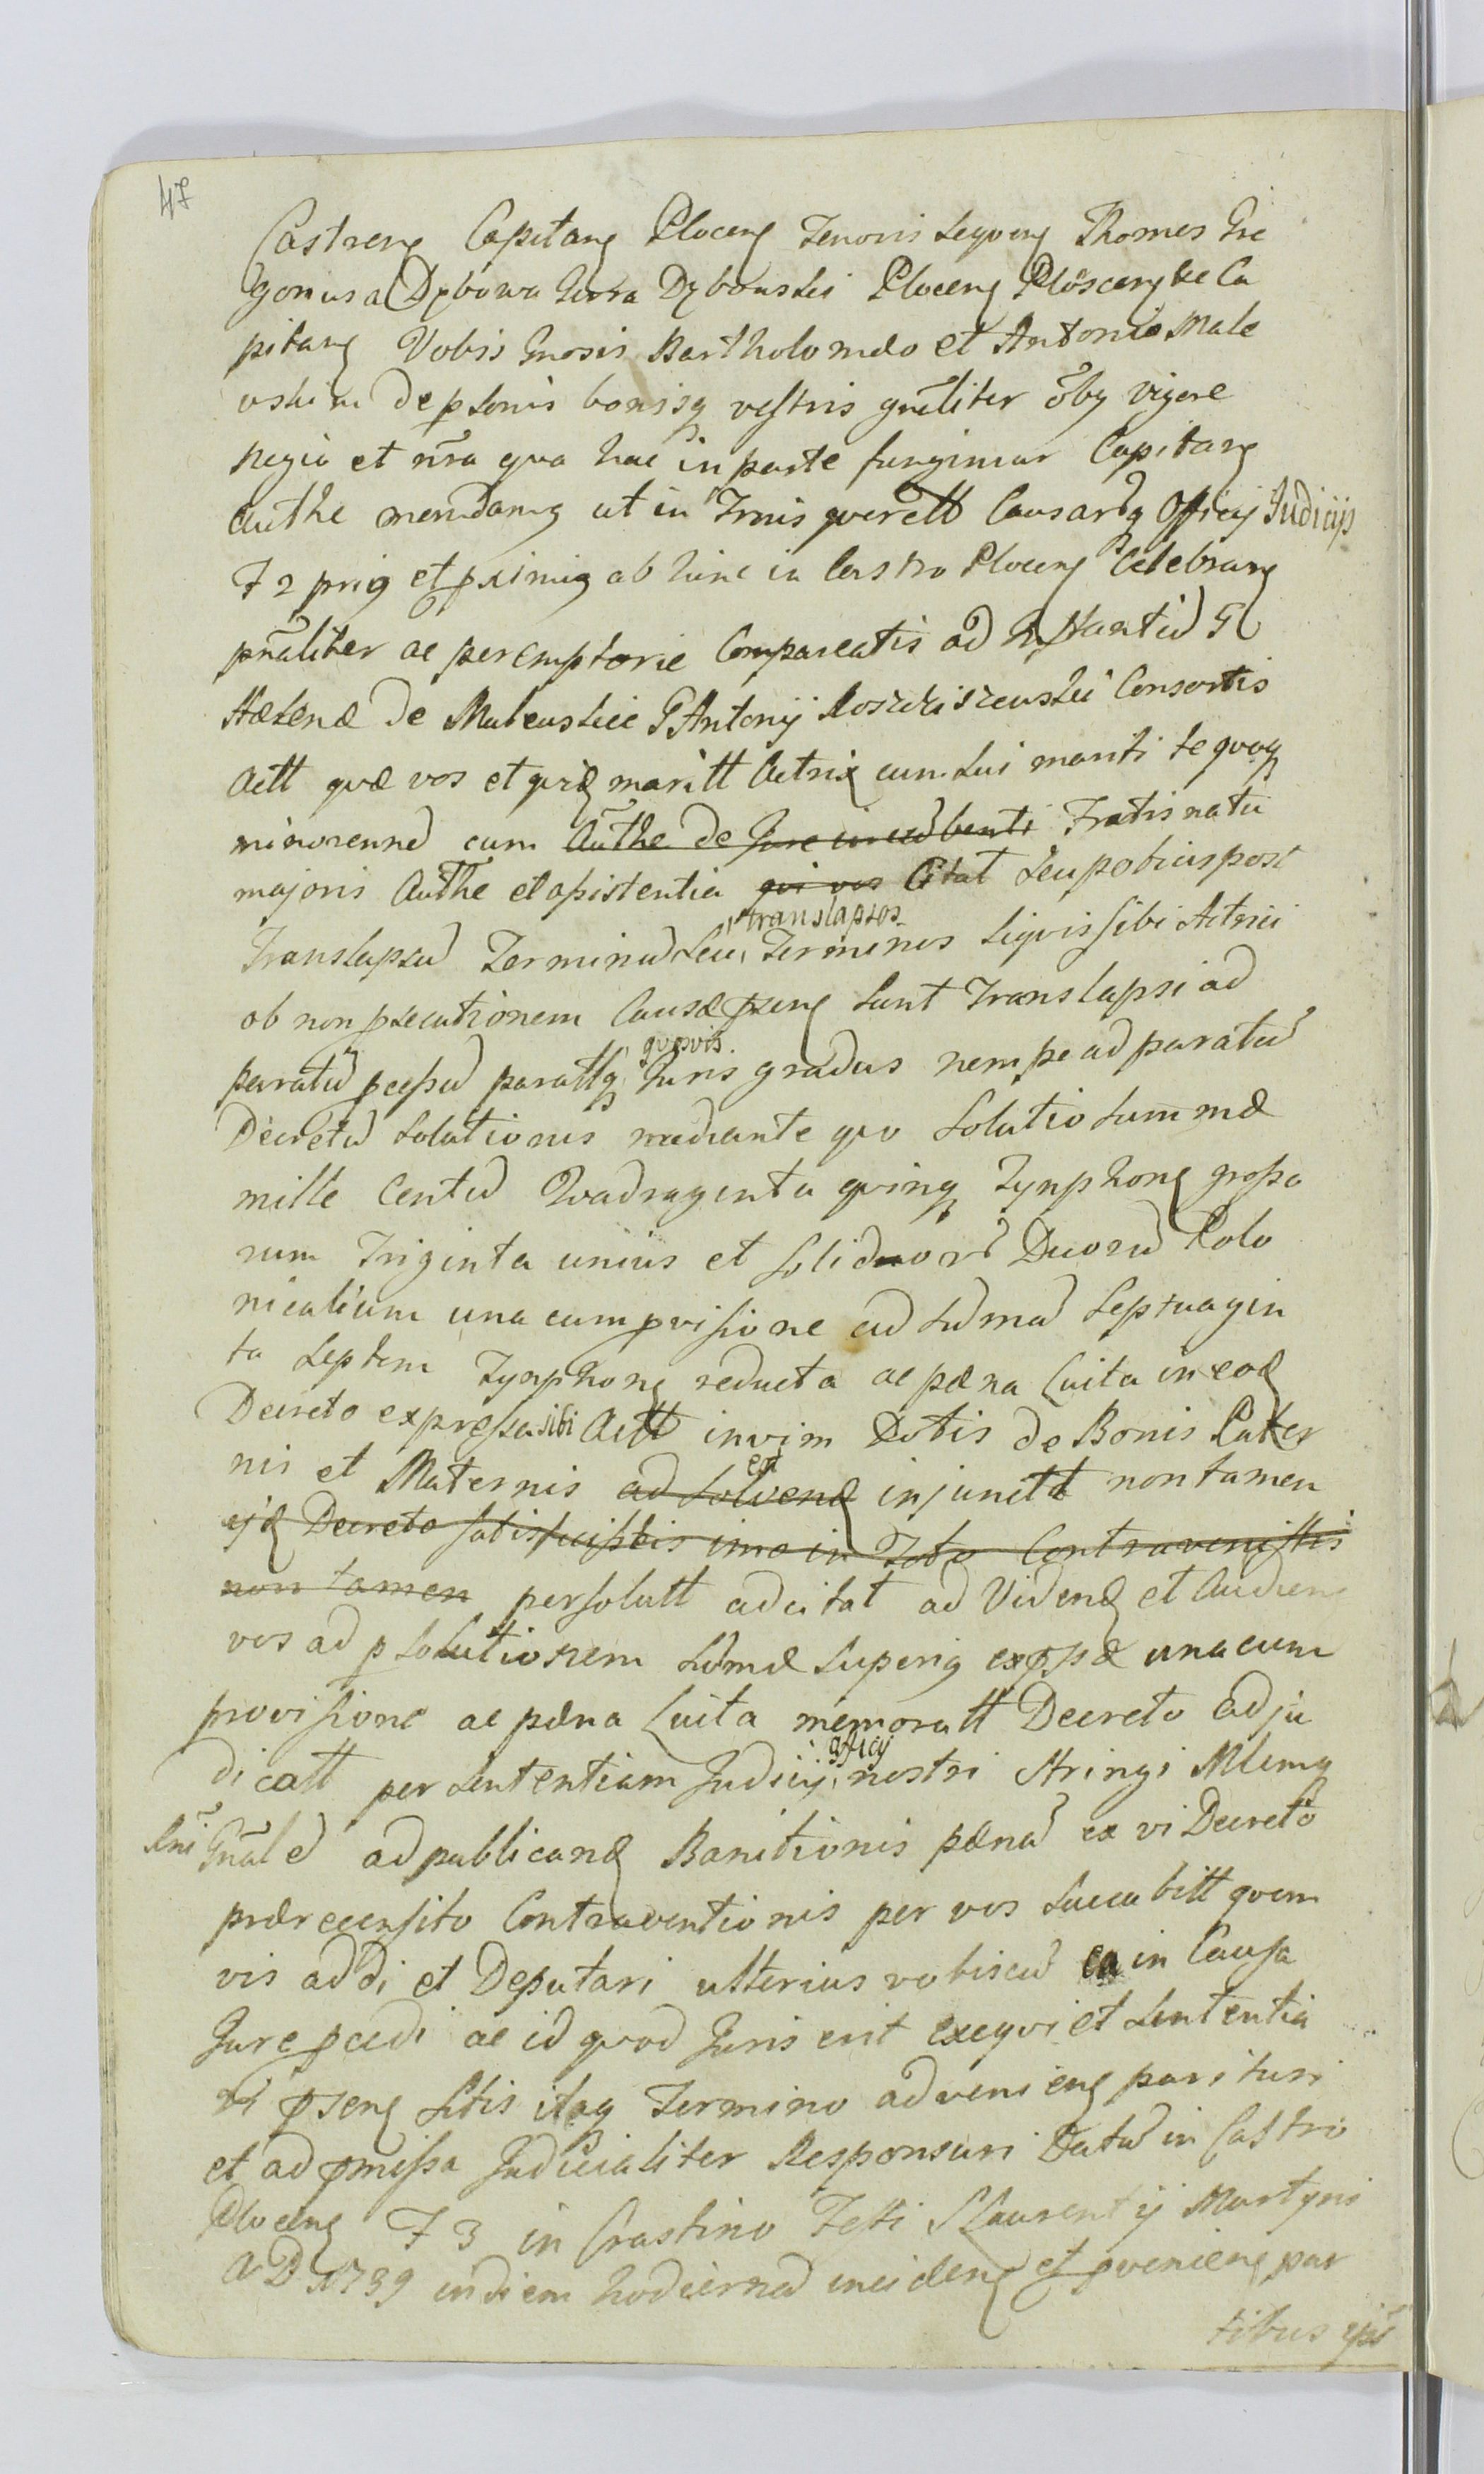 47
Castreng Capitang Ploceng Tenoris Seqveng Thomas Gre
gorius a Dębowa Gora Dębowski Ploceng Płosceng be Ca
pitang Vobis Gnosis Bartholomæo et Antonio Male
wskim de psonis bonisq vestris gnãliter õbg vigore
Regia et nr̃a qva hac in parte fungimur Capitang
Authe mandamg ut in Trnis qverell Causarq Officij Judicijs
F 2 prig et primig ab hinc in Castro Ploceng Celebrang
pnãliter ac peremptorie Compareatis ad Instantid G
Hælenæ de Maleuskiee G Antonij Kosciszewski Consortis
Actt qvæ vos et qvid maritt Actrix cum Sui mariti se qvoq
minorennd cum Aũthe de Jure incūbenti Fratis natu
majoris Authe et assistentia qvi vos Citat Seu potius post
translapsos
Translapsud Terminud Seu, Terminos Siqvis sibi Actrici
ob non psecutionem Causæ pseng Sunt Translapsi ad
qvosvis
paratud pcessud parattq Juris gradus nempe ad paratud
Decretud Solutionis mediante qvo Solutio Summæ
mille Centud Qvadraginta qvinq Tynphong grosso
rum Triginta unius et Soliduord Duorud Polo
nicalium una cum pvisione ad Sumad Septuagin
ta Septem Tynphong reducta ac pæna Luita in eod
Decreto expressa sibi Actt in vim Dotis de Bonis Pater
ea
nis et Maternis ad Solvend injunctt non tamen
ejd Decreto Satisfecistis imo in Toto Contravenistis
non tamen persolutt adcitat ad Videnđ et Audien
vos ad psolutionem Sumæ Superig expssæ una cum
provisione ac pæna Luita memoratt Decreto adju
officij
dicatt per Sententiam Judicij, nostri Stringi Mlemg
Rni Gnãled ad publicand Banitionis pænad ex vi Decreto
præreccensito Contraventionis per vos Succubitt qvam
vis addi et Deputari ulterius vobiscud ea in Causa
Jure pcedi ac id qvod Juris erit exeqvi et Sententia
ri pseng Sitis itaq Termino advenieng parituri
et ad pmissa Judicialiter Responsuri Datud in Castro
Ploceng F 3 in Crastino Festi S Laurentij Martyris
A D 1739 in diem hodiernad incideng et pvenieng par
tibus ips̃